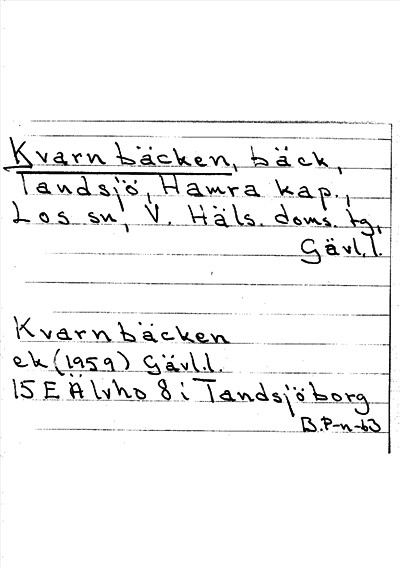 Kvarnbäcken, bäck,
Tandsjö, Hamra kap.,
Los sn, V. Häls. doms. tg,
Gävl.l.
Kvarnbäcken
ek (1959) Gävl.l.
15E Älvho 8 i Tandsjöborg
B.P-n-63